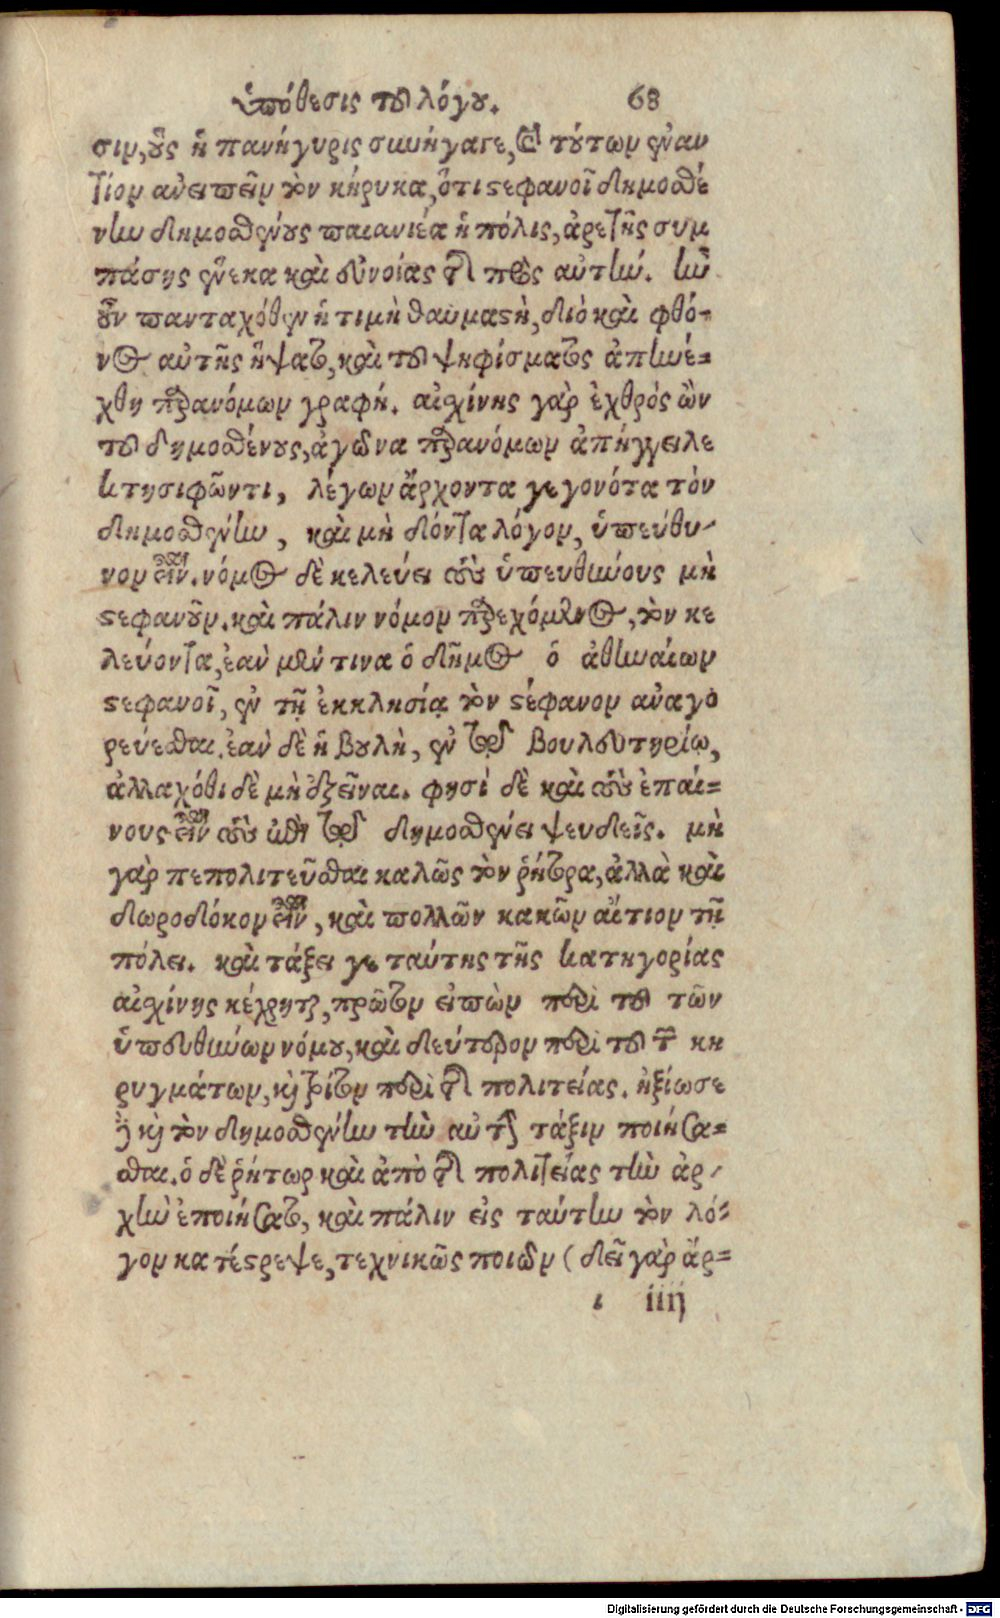 ὑπόθεσις τοῦ λόγου. 68
σιν, οὓς ἡ πανήγυρις συνήγαγε, καὶ τούτων ἐναν
τίον ἀνειπεῖν τὸν κήρυκα, ὅτι στεφανοῖ δημοσθέ
νην δημοσθένους παιανιέα ἡ πόλις, ἀρετῆς συμ
πάσης ἕνεκα καὶ εὐνοίας τῆς πρὸς αὐτήν. ἦν
οὖν πανταχόθεν ἡ τιμὴ θαυμαστὴ, διὸ καὶ φθό-
νος αὐτῆς ἥψατο, καὶ τοῦ ψηφίσματος ἀπηνέ=
χθη παρανόμων γραφή. αἰσχίνης γὰρ ἐχθρὸς ὢν
τοῦ δημοσθένους, ἀγῶνα παρανόμων ἀπήγγειλε
κτησιφῶντι, λέγων ἄρχοντα γεγονότα τὸν
δημοσθένην, καὶ μὴ δόντα λόγον, ὑπεύθυ-
νον εἶναι. νόμος δὲ κελεύει τοὺς ὑπευθύνους μὴ
στεφανοῦν. καὶ πάλιν νόμον παρεχόμενος, τὸν κε
λεύοντα, ἐὰν μέν τινα ὁ δῆμος ὁ ἀθηναίων
στεφανοῖ, ἐν τῇ ἐκκλησίᾳ τὸν στέφανον ἀναγο
ρεύεσθαι. ἐὰν δὲ ἡ βουλὴ, ἐν τῷ βουλευτηρίῳ,
ἀλλαχόθι δὲ μὴ ἐξεῖναι. φησὶ δὲ καὶ τοὺς ἐπαί=
νους εἶναι τοὺς ἐπὶ τῷ δημοσθένει ψευδεῖς. μὴ
γὰρ πεπολιτεῦσθαι καλῶς τὸν ῥήτορα, ἀλλὰ καὶ
δωροδόκον εἶναι, καὶ πολλῶν κακῶν αἴτιον τῇ
πόλει. καὶ τάξει γε ταύτης τῆς κατηγορίας
αἰσχίνης κέχρηται, πρῶτον εἰπὼν περὶ τοῦ τῶν
ὑπευθύνων νόμου, καὶ δεύτερον περὶ τοῦ τῶν κη
ρυγμάτων, καὶ τρίτον περὶ τῆς πολιτείας. ἠξίωσε
δὲ καὶ τὸν δημοσθένην τὴν αὐτὴν τάξιν ποιήσα=
σθαι. ὁ δὲ ῥήτωρ καὶ ἀπὸ τῆς πολιτείας τὴν ἀρ-
χὴν ἐποιήσατο, καὶ πάλιν εἰς ταύτην τὸν λό=
γον κατέστρεψε, τεχνικῶς ποιῶν (δεῖ γὰρ ἄρ=
ι iiij
Digitalisierung gefördert durch die Deutsche Forschungsgemeinschaft - DFG